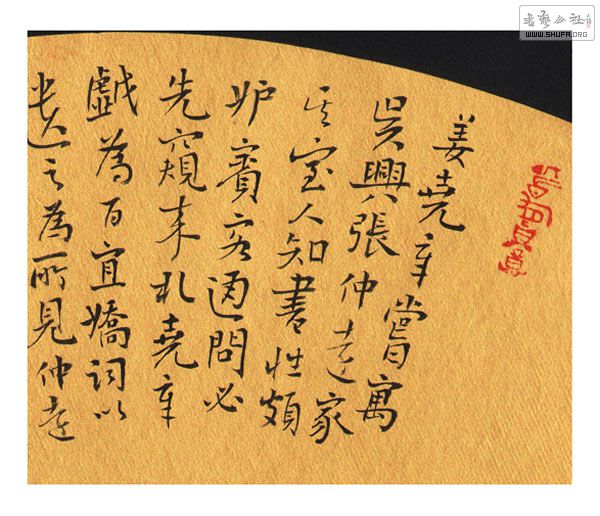 書藝公社
WWW.SHUFA.ORG
姜堯章嘗寓
吳興張仲遠家
其室人知書性頗
妒賓客通問必
先窺來札堯章
戲為百宜嬌詞以
遺之為所見仲遠